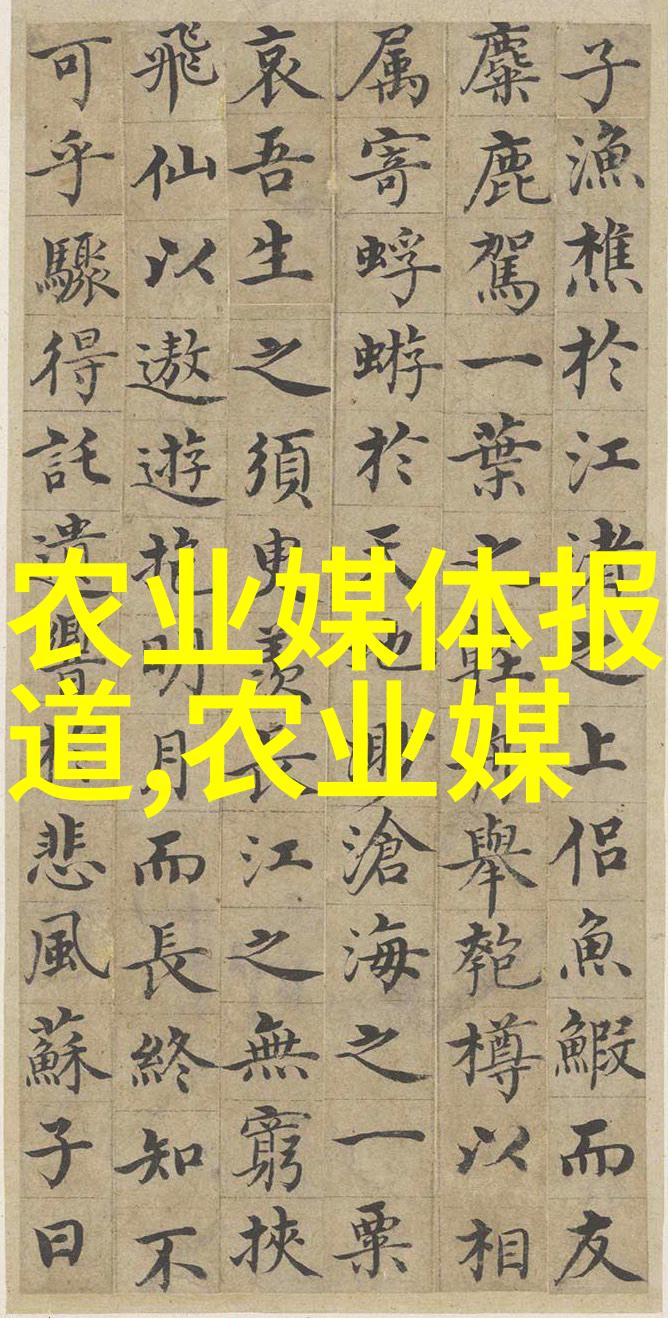 子漁樵於江渚之上侶魚鰕而友
麋鹿駕一葉之輕舟舉匏樽以相
属寄蜉蝣於天地渺滄海之一粟
哀吾生之須臾羨長江之無窮挾
飛仙以遨遊抱明月而長終知不
可乎驟得託遺響於悲風蘇子曰
农业媒体报
道,农业媒